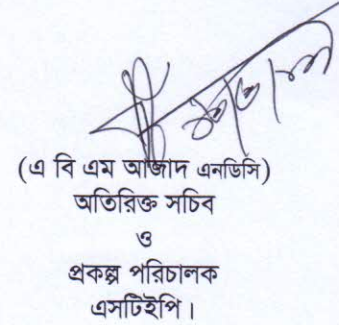 (এ বি এম আজাদ এনডিসি)
অতিরিক্ত সচিব
ও
প্রকল্প পরিচালক
এসটিইপি।